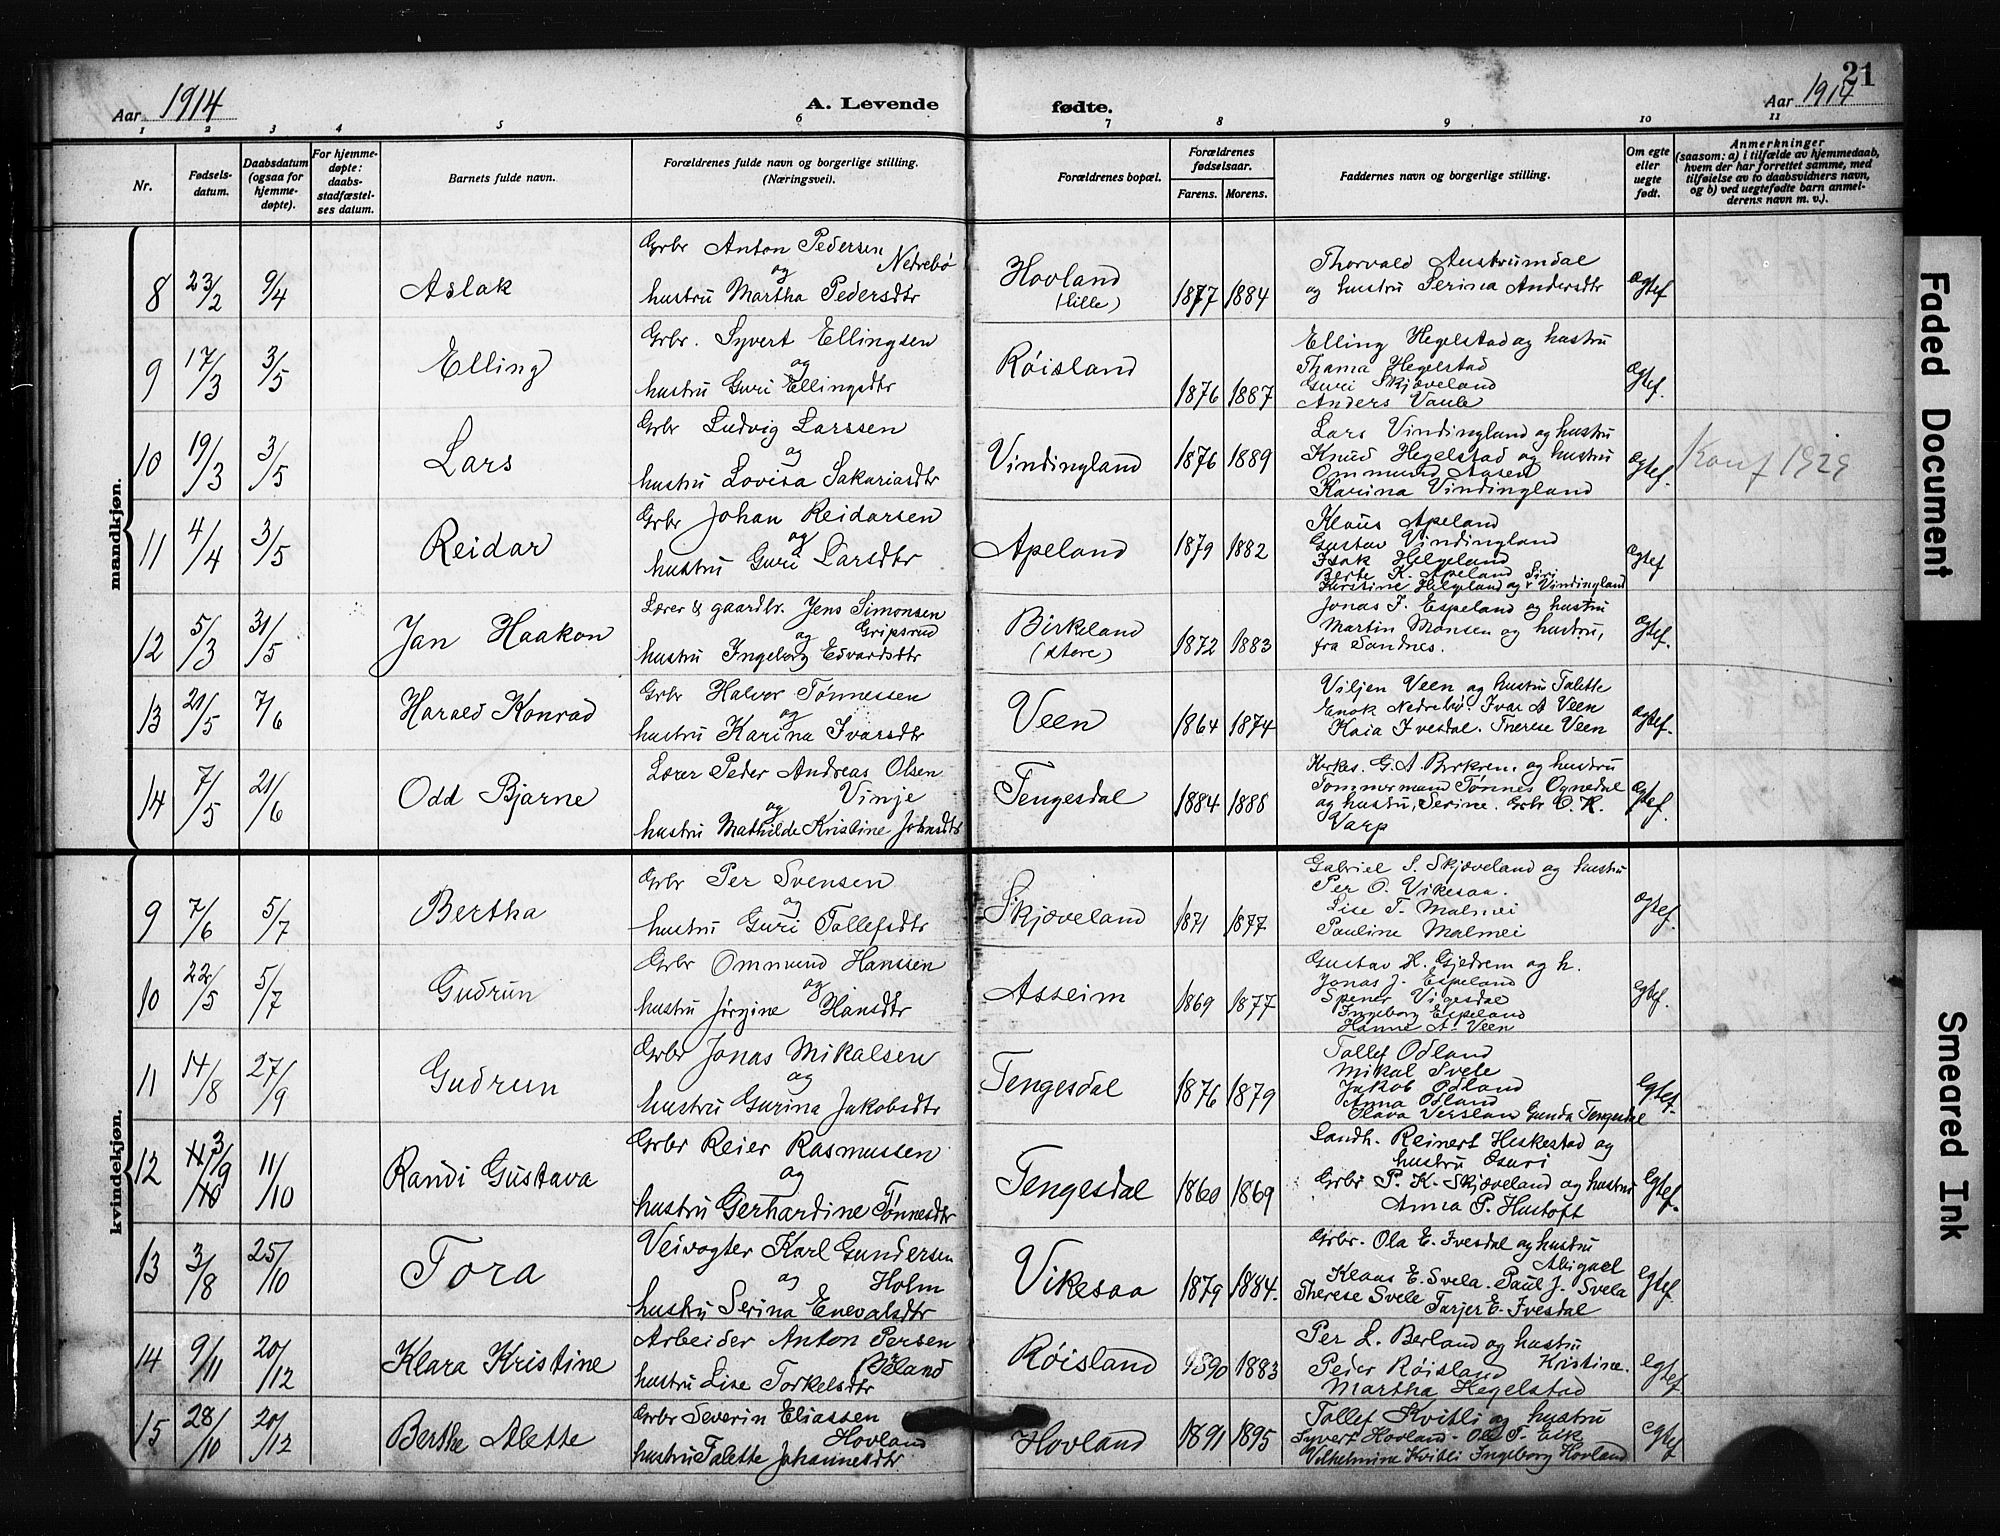 21
Aar 1914
A. Levende fødte.
Aar 1914
1 2 3 4 5 6 7 8 9 10 11
Nr.
Fødsels-
datum.
Daabsdatum
(ogsaa for
hjemme-
døpte).
For hjemme-
døpte:
daabs-
stadfæstel-
ses datum.
Barnets fulde navn.
Forældrenes fulde navn og borgerlige stilling.
(Næringsvei).
Forældrenes bopæl.
Forældrenes
fødselsaar.
Farens. Morens.
Faddernes navn og borgerlige stilling.
Om egte
eller
uegte
født.
Anmerkninger
(saasom: a) i tilfælde av hjemmedaab,
hvem der har forrettet samme, med
tilføielse av to daabsvidners navn,
og b) ved uegtefødte barn anmel-
derens navn m. v.).
mandkjøn.
8 23/2 9/4 Aslak
Grbr Anton Pedersen
Nedrebø
og
hustru Martha Pedersdtr
Hovland
(lille)
1877 1884
Thorvald Austrumdal
og hustru Serina Andersdtr
Ægtef
9 17/3 3/5 Elling
Grbr. Syvert Ellingsen
og
hustru Guri Ellingsdtr
Røisland
1876 1887
Elling Hegelstad og hustru
Thama Hegelstad
Guri Skjæveland
Anders Vaule
Ægtef.
10 19/3 3/5 Lars
Grbr Ludvig Larssen
og
hustru Lovisa Sakariasdtr
Vindingland
1876 1889
Lars Vindingland og hustru
Knud Hegelstad og hustru
Ommund Aasen
Karina Vindingland
Ægtef.
Konf 1929
11 4/4 3/5 Reidar
Grbr Johan Reidarsen
og
hustru Guri Larsdtr
Apeland
1879 1882
Klaus Apeland
Gustav Vindingland
Isak Helgeland
Berte K. Apeland Siri
Kirstine Helgeland og Vindingland
Ægtef
12 5/3 31/5 Jan Haakon
Lærer & gaardbr. Jens Simonsen
og Gripsrud
hustru Ingeborg Edvardsdtr
Birkeland
(store)
1872 1883
Jonas J. Espeland og hustru
Martin Monsen og hustru,
fra Sandnes.
Ægtef.
13 21/5 7/6 Harald Konrad
Grbr Halvor Tønnessen
og
hustru Karina Ivarsdtr
Veen
1864 1874
Viljen Veen og hustru Talette
Enok Nedrebø. Ivar A Veen
Kaia Ivesdal. Therese Veen
Ægtef.
14 7/5 21/6 Odd Bjarne
Lærer Peder Andreas Olsen
Vinje
og
hustru Mathilde Kristine Johnsdtr
Tengesdal
1884 1888
Kirkes. G. A. Birkrem og hustru
Tømmermand Tønnes Ognedal
og hustru, Serine. Grbr O. K.
Varp
Ægtef.
kvindekjøn.
9 7/6 5/7 Bertha
Grbr Per Svensen
og
hustru Guri Tollefsdtr
Skjæveland
1871 1877
Gabriel S. Skjæveland og hustru
Per O. Vikesaa.
Lise T. Malmei
Pauline Malmei
Ægtef.
10 22/5 5/7 Gudrun
Grbr Ommund Hanssen
og
hustru Jørgine Hansdtr
Asseim
1869 1877
Gustav H. Gjedrem og h.
Jonas J. Espeland
Spener Vigesdal
Ingeborg Espeland
Hanne A. Veen
Egtef.
11 14/8 27/9 Gudrun
Grbr Jonas Mikalsen
og
hustru Gurina Jakobsdtr
Tengesdal
1876 1879
Tollef Odland
Mikal Svele
Jakob Odland
Anna Odland
Olava Versland Gunda Tengesdal
Egtef.
12 3/9 11/10 Randi Gustava
Grbr Reier Rasmussen
og
hustru Gerhardine Tønnesdtr
Tengesdal
1860 1869
Landh. Reinert Heskestad og
hustru Osuri
Grbr P. K. Skjæveland og hustru
Anna P. Hustoft
Egtef.
13 3/8 25/10 Tora
Veivogter Karl Gundersen
og Holm
hustru Serina Enevalsdtr
Vikesaa
1879 1884.
Grbr. Ola E. Ivesdal og hustru
Abigael
Klaas E. Svela. Paul J. Svela
Therese Svele Tarjer E. Ivesdal
Egtef.
14 9/11 20/12 Klara Kristine
Arbeider Anton Persen
Øiland
hustru Lise Torkelsdtr
Røisland
1890 1883
Per L. Berland og hustru
Peder Røisland Kristine.
Martha Hegelstad
Egtef.
15 28/10 20/12 Berthe Alette
Grbr Severin Eliassen
Hovland
hustru Talette Johannesdtr
Hovland
1891 1895
Tollef Kvitli og hustru
Syvert Hovland - Ole T. Eik
Vilhelmine Kvitli Ingeborg Hovland
Egtef
Faded Document
Smeared Ink